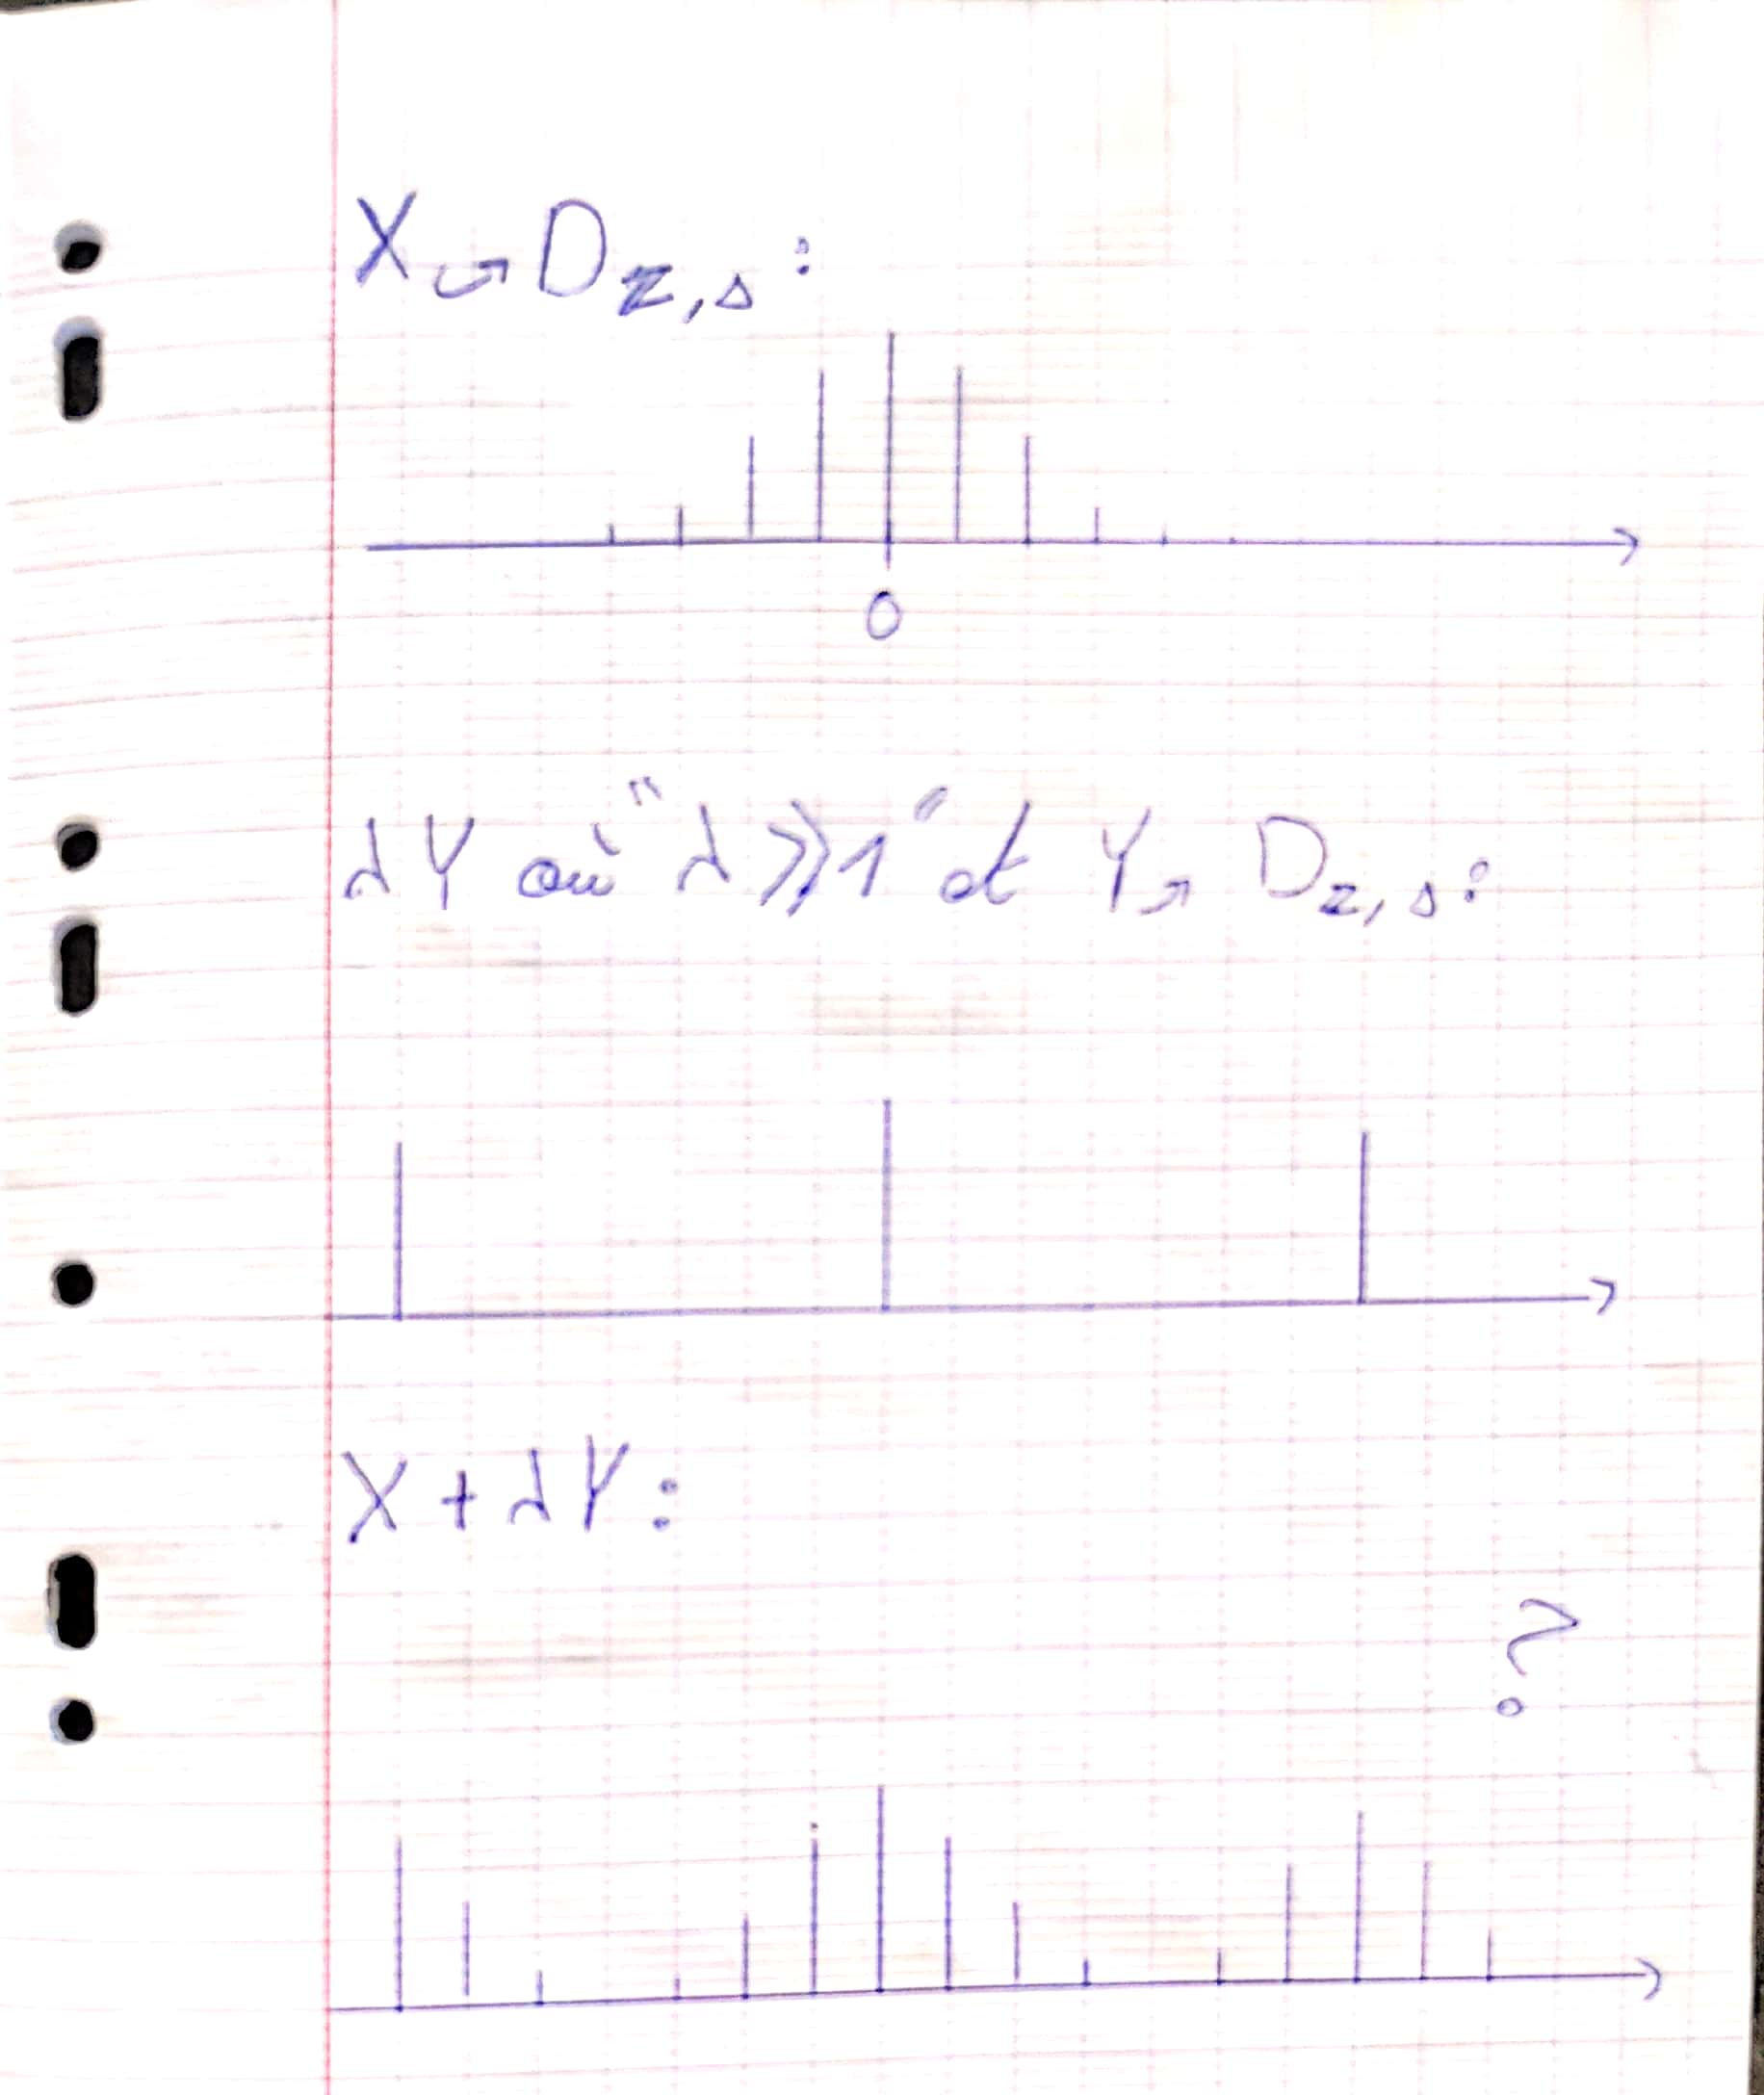 X ↪ D_ℤ,s :
0
λY où "λ ≫ 1" et Y ↪ D_ℤ,s :
X + λY :
?